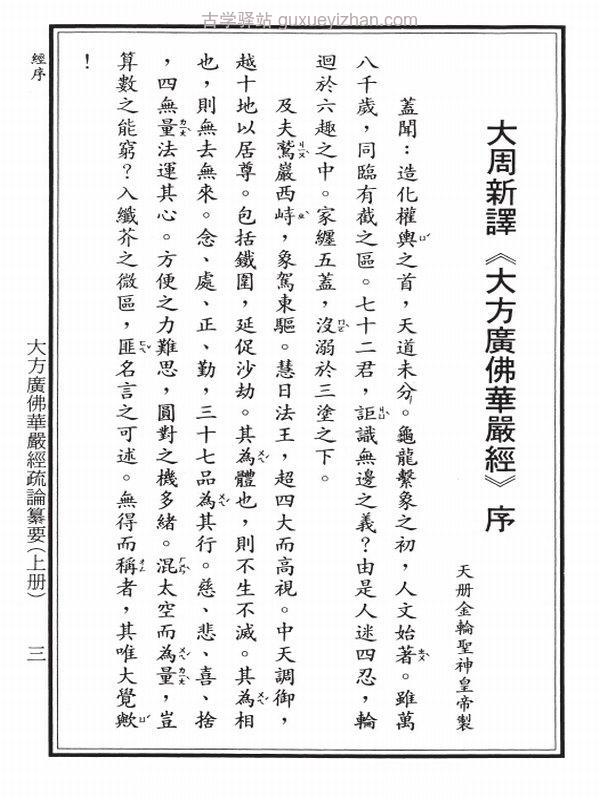 古学驿站 guxueyizhan.com
大周新譯《大方廣佛華嚴經》序
天册金輪聖神皇帝製
蓋聞：造化權輿之首，天道未分。龜龍繫象之初，人文始著。雖萬
八千歲，同臨有截之區。七十二君，詎識無邊之義？由是人迷四忍，輪
迴於六趣之中。家纏五蓋，沒溺於三塗之下。
及夫鷲巖西峙，象駕東驅。慧日法王，超四大而高視。中天調御，
越十地以居尊。包括鐵圍，延促沙劫。其為體也，則不生不滅。其為相
也，則無去無來。念、處、正、勤，三十七品為其行。慈、悲、喜、捨
，四無量法運其心。方便之力難思，圓對之機多緒。混太空而為量，豈
算數之能窮？入纖芥之微區，匪名言之可述。無得而稱者，其唯大覺歟
！
經序
大方廣佛華嚴經疏論纂要（上册）
三